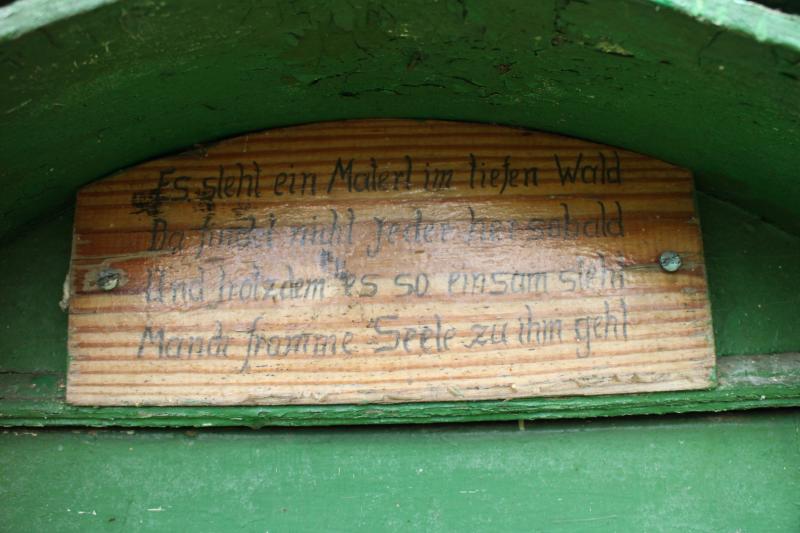 Es steht ein Materl im tiefen Wald
Da findet nicht jeder her sobald
Und trotzdem es so einsam steht
Manch fromme Seele zu ihm geht